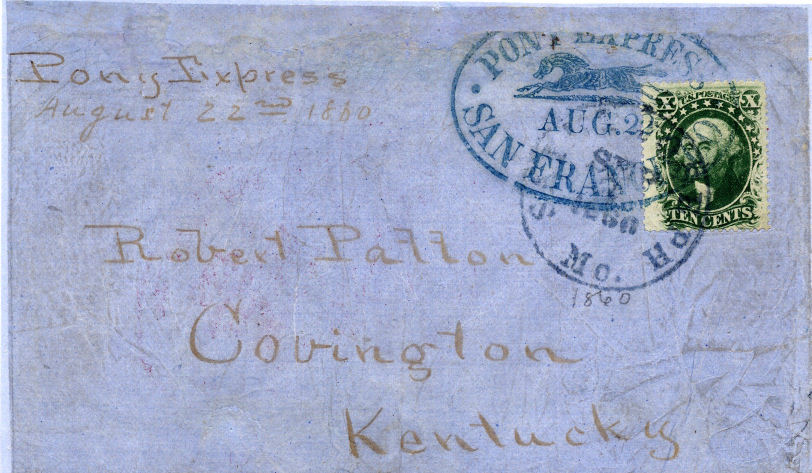 Pony Express
August 22nd 1860
PONY EXPRES
AUG. 22
SAN FRAN
X U.S. POSTAGE X
TEN CENTS
Mo.
1860
Robert Patton
Covington
Kentucky